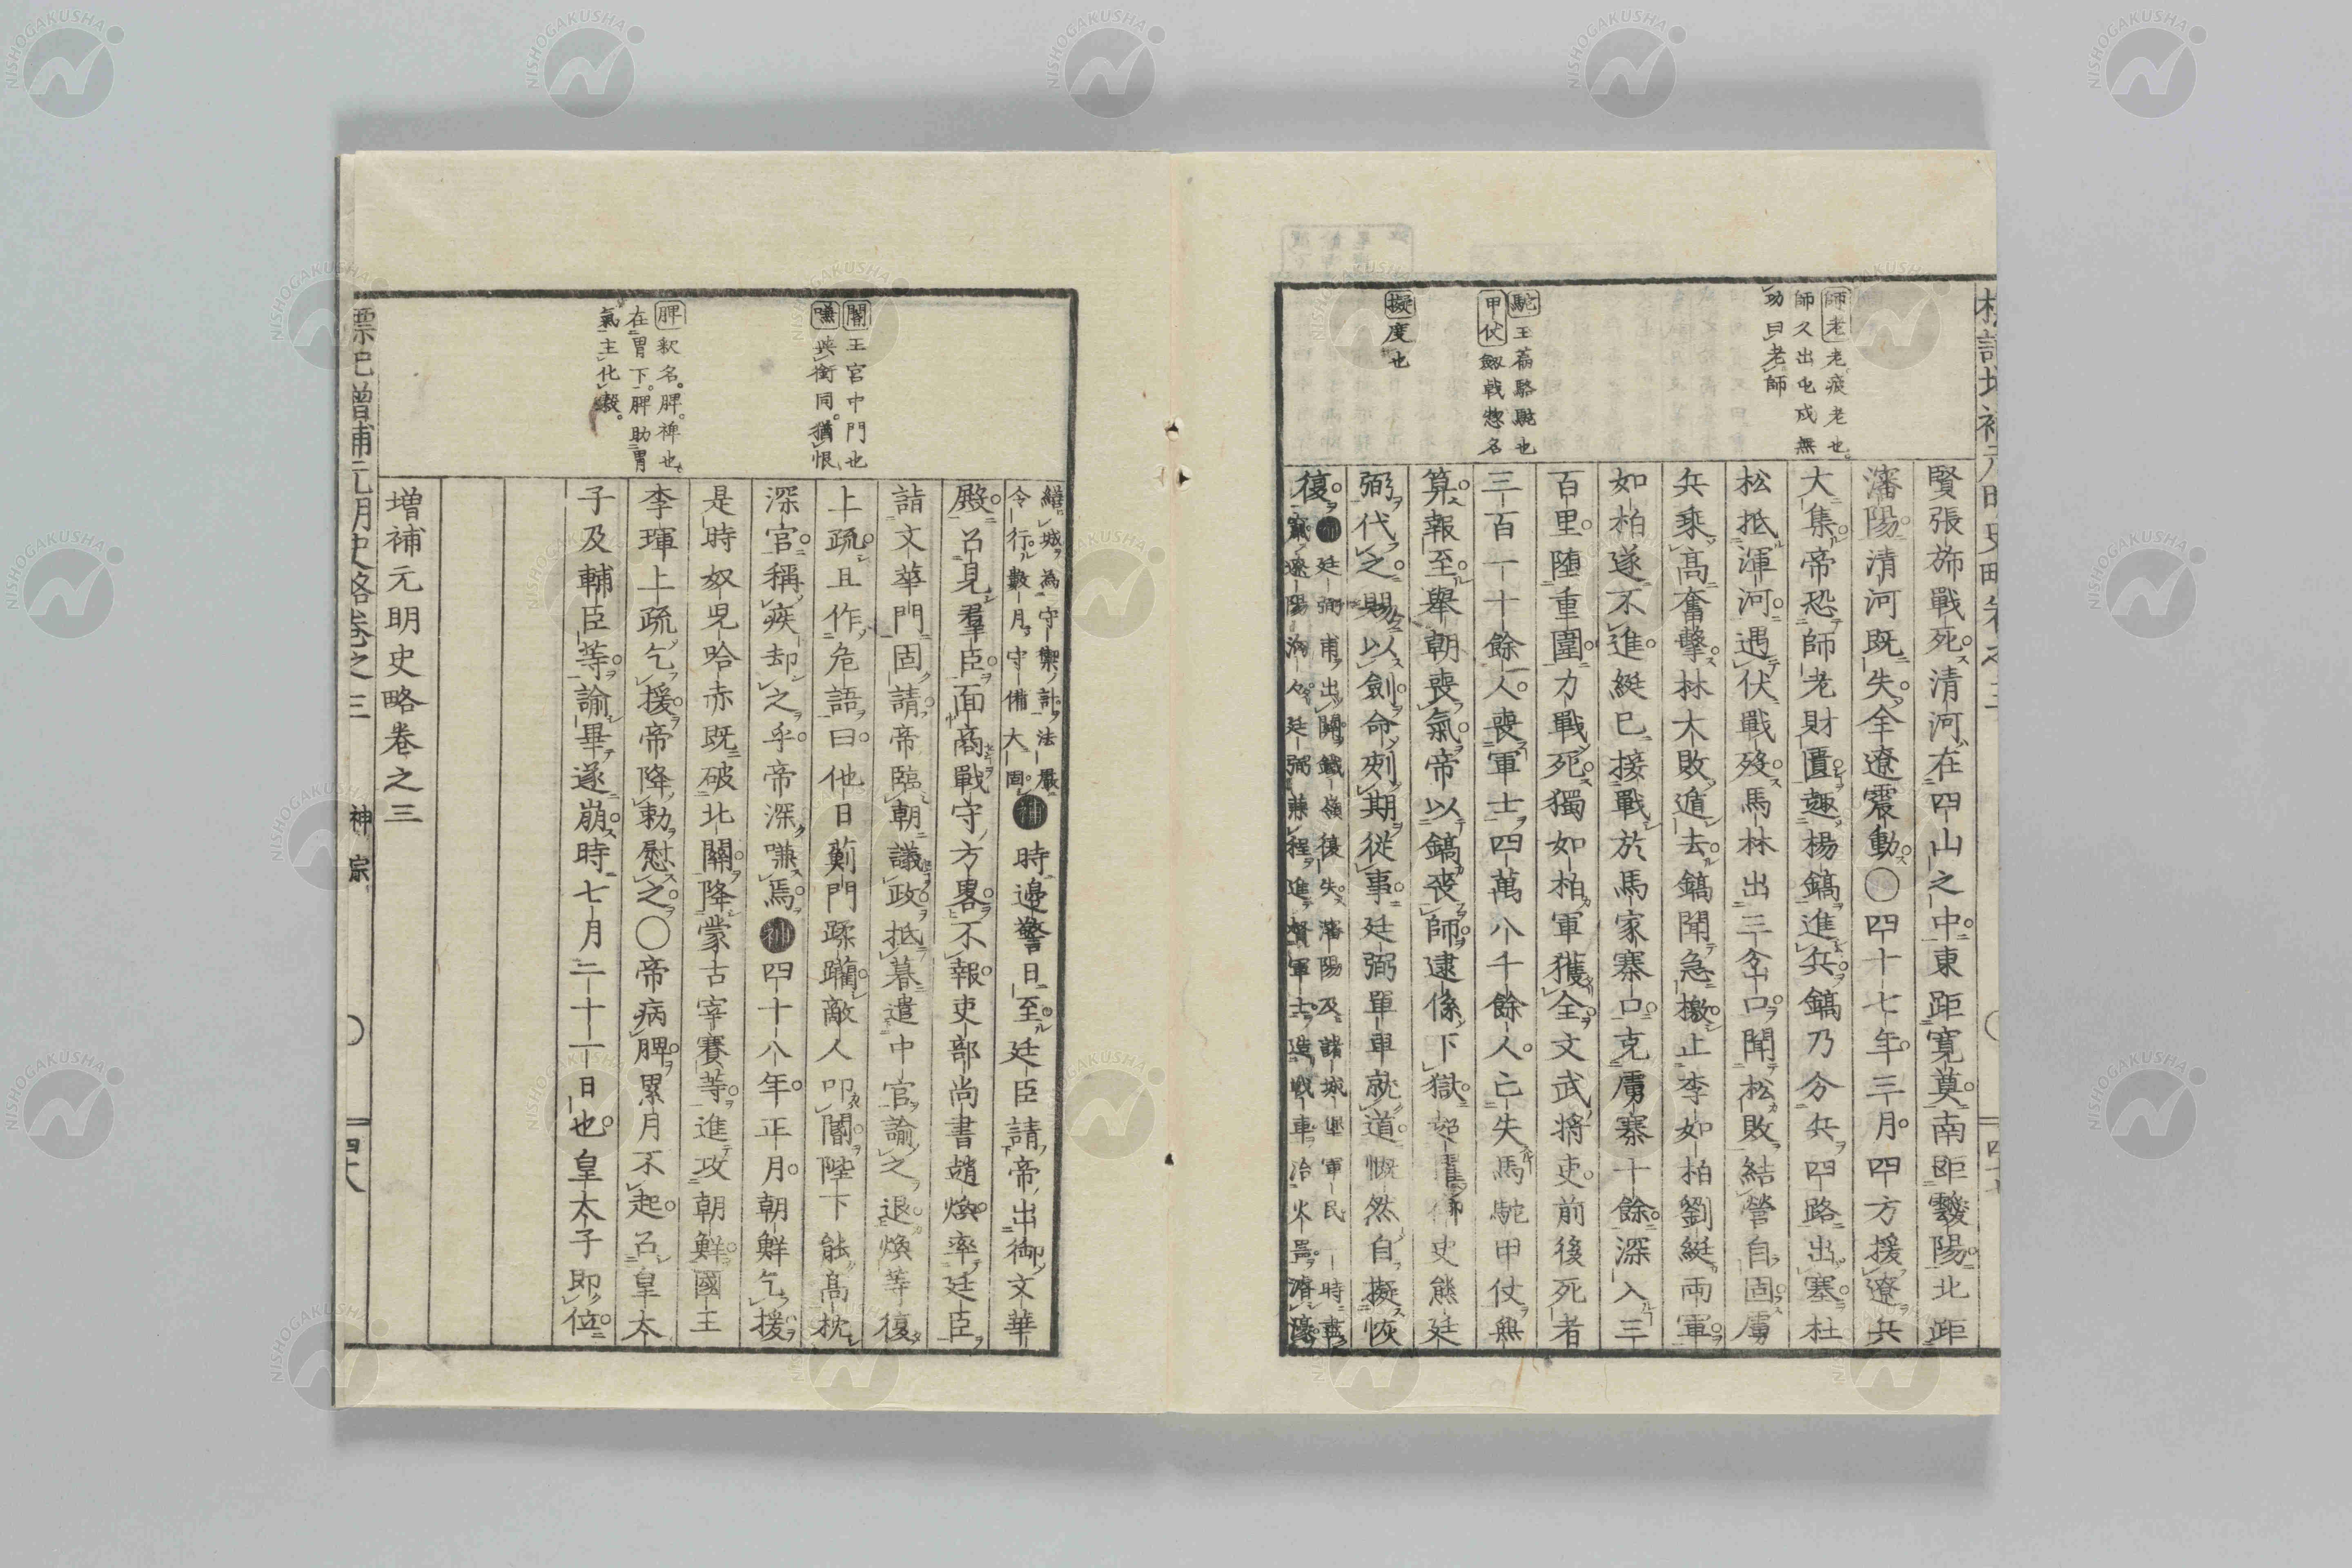 師老老疲老也
師久出屯戍無
功曰老師
駝玉篇駱駝也
甲仗劔戟惣名
擬度也
賢張旆戰死清河在四山之中東距寛奠南距靉陽北距
瀋陽清河既失全遼震動〇四十七年三月四方援遼兵
大集帝恐師老財匱趣楊鎬進兵鎬乃分兵四路出塞杜
松抵渾河遇伏戰歿馬林出三岔口聞松敗結營自固虜
兵乘高奮擊林大敗遁去鎬聞急檄止李如柏劉綎兩軍
如柏遂不進綎已接戰於馬家寨口克虜寨十餘深入三
百里堕重圍力戰死獨如柏軍獲全文武將吏前後死者
三百一十餘人喪軍士四萬八千餘人亡失馬駝甲仗無
算報至舉朝喪氣帝以鎬喪師逮係下獄起御史熊廷
弼代之賜以劍命刻期從事廷弼單車就道慨然自擬恢
復補廷弼甫出關鐵嶺復失瀋陽及諸城堡軍民一時盡
竄遼陽洶人廷弼兼程進督軍士造戰車治火噐濬濠
繕城為守禦計法嚴
令行數月守備大固
補時邊警日至廷臣請帝出御文華
殿召見羣臣面商戰守方畧不報吏部尚書趙煥率廷臣
詣文華門固請帝臨朝議政抵暮遣中官諭之退煥等復
上疏且作危語曰他日薊門蹂躪敵人叩閽陛下能高枕
深宮稱疾却之乎帝深嗛焉補四十八年正月朝鮮乞援
是時奴兒哈赤既破北關降蒙古宰賽等進攻朝鮮國王
李琿上疏乞援帝降勅慰之〇帝病脾累月不起召皇太
子及輔臣等諭畢遂崩時七月二十一日也皇太子即位
増補元明史略卷之三
閽王宮中門也
嗛與銜同猶恨
脾釈名脾裨也
在胃下脾助胃
氣主化穀
標記増補元明史略卷之三 神宗 四十八